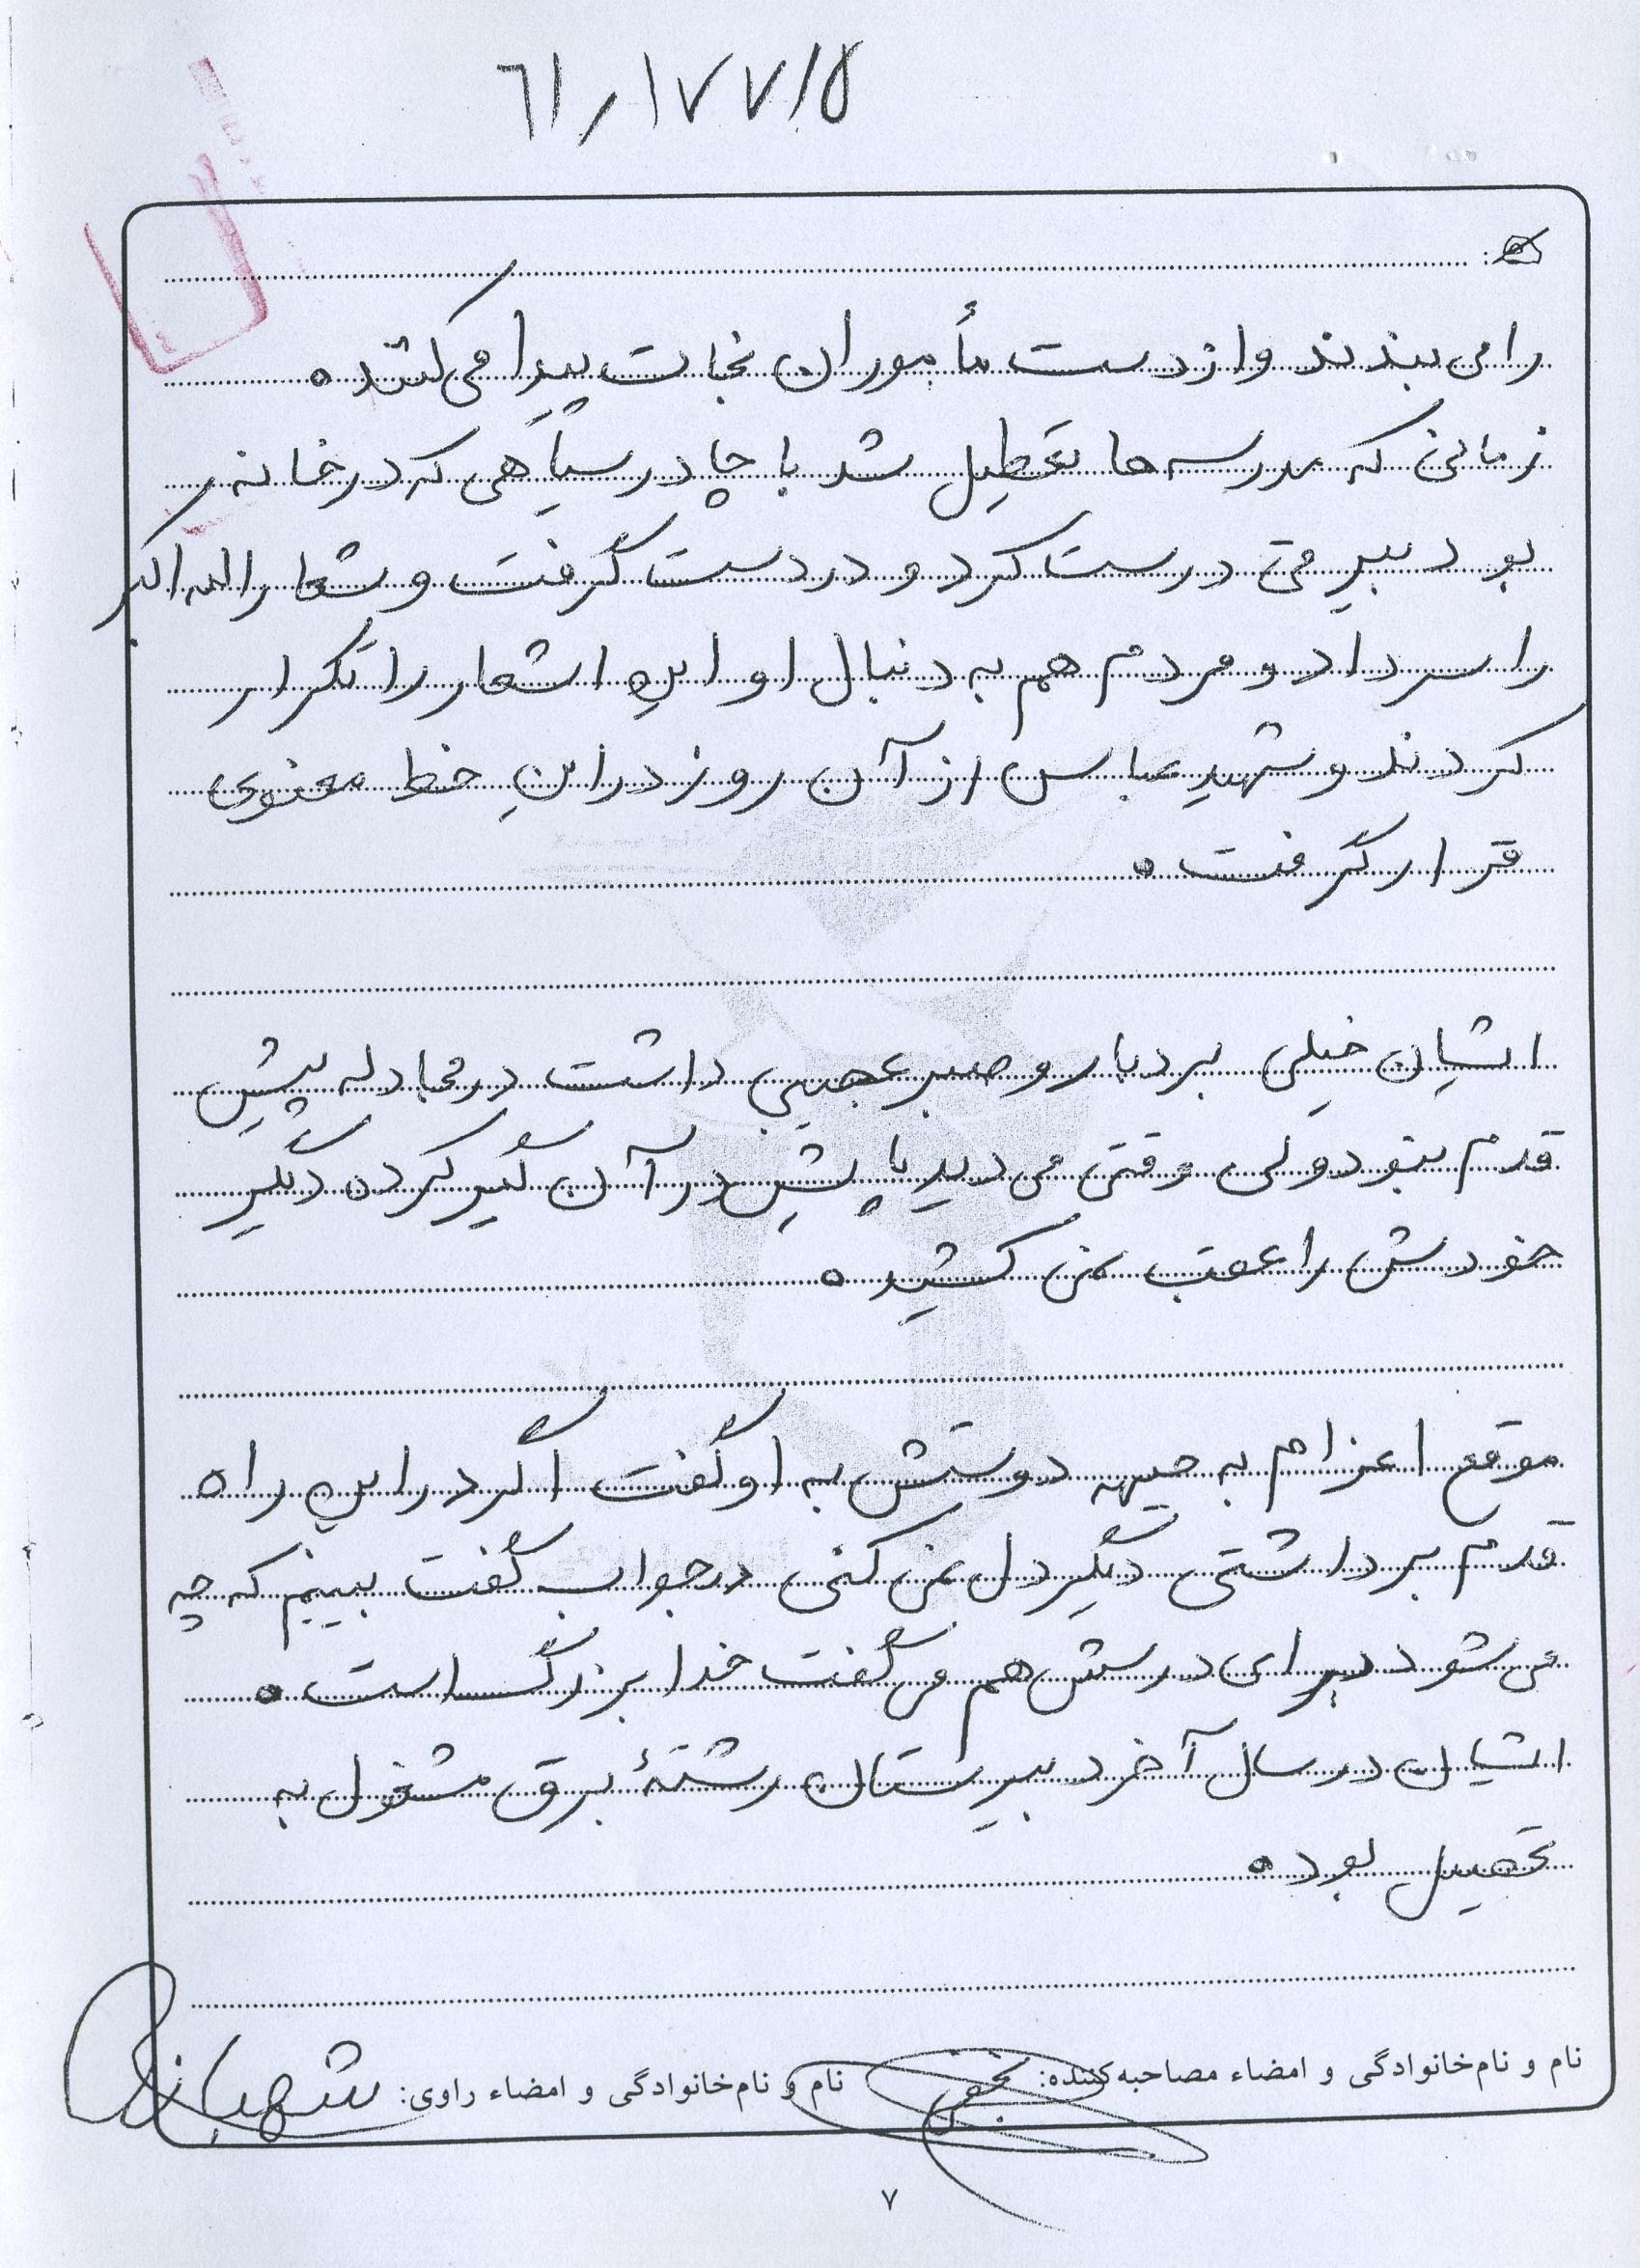 ۶۱٫۱۷۷۱۵
را می بندند و از دست مأموران نجات پیدا می کنند.
زمانی که مدرسه ها تعطیل شد با چادر سیاهی که در خانه
بود بیرقی درست کرد و در دست گرفت و شعار الله اکبر
را سر داد و مردم هم به دنبال او این اشعار را تکرار
کردند و شهید عباس از آن روز در این خط معنوی
قرار گرفت.
ایشان خیلی بردبار و صبر عجیبی داشت در مجادله پیش
قدم نبود ولی وقتی می دید پایش در آن گیر کرده دیگر
خودش را عقب نمی کشید.
موقع اعزام به جبهه دوستش به او گفت اگر در این راه
قدم برداشتی دیگر دل نمی کنی در جواب گفت ببینم که چه
می شود برای درسش هم می گفت خدا بزرگ است.
ایشان در سال آخر دبیرستان رشتهٔ برق مشغول به
تحصیل بود.
نام و نام‌خانوادگی و امضاء مصاحبه‌کننده: نجفی نام و نام‌خانوادگی و امضاء راوی:
۷